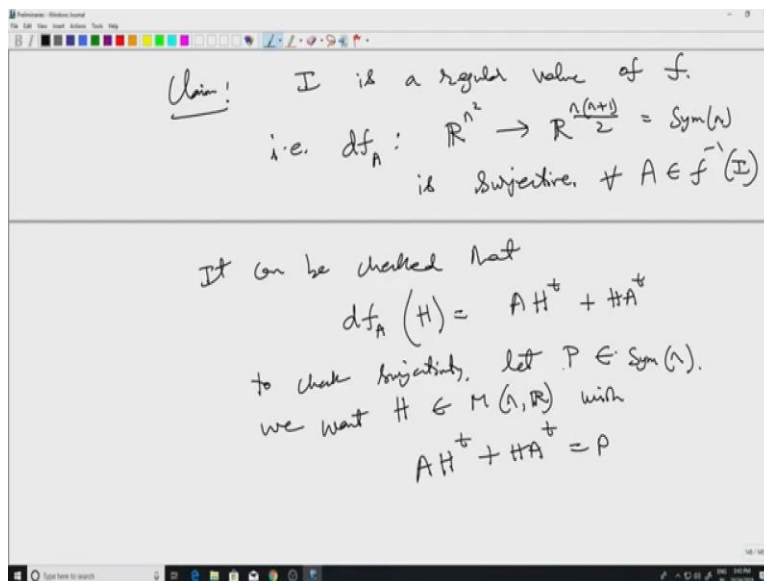 Preliminaries - Windows Journal
File Edit View Insert Actions Tools Help
Claim! I is a regular value of f.
i.e. df_A : ℝ^{n²} → ℝ^{n(n+1)/2} = Sym(n)
is surjective, ∀ A ∈ f^{-1}(I)
It can be checked that
df_A (H) = AH^t + HA^t
to check surjectivity, let P ∈ Sym(n).
we want H ∈ M(n, ℝ) with
AH^t + HA^t = P
Type here to search